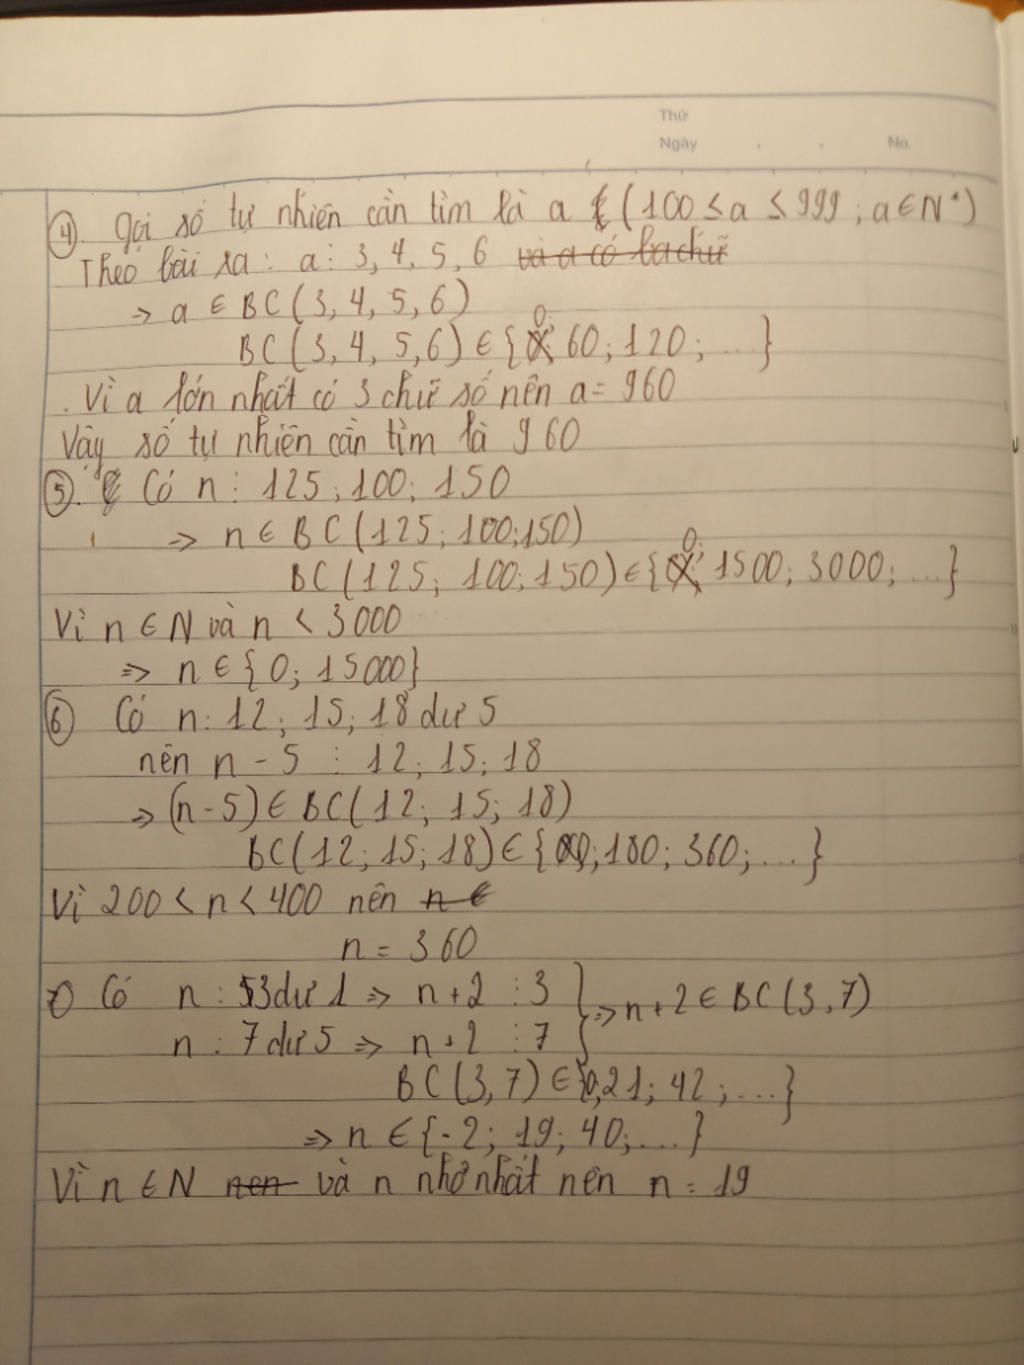 Thứ
Ngày . . No.
④. gọi số tự nhiên cần tìm là a (100 ≤ a ≤ 999; a ∈ N*)
Theo bài ra: a : 3, 4, 5, 6 và a có ba chữ
=> a ∈ BC(3, 4, 5, 6)
BC(3, 4, 5, 6) ∈ {0; 60; 120; ...}
. Vì a lớn nhất có 3 chữ số nên a = 960
Vậy số tự nhiên cần tìm là 960
⑤. Có n : 125; 100; 150
=> n ∈ BC(125; 100; 150)
BC(125; 100; 150) ∈ {0; 1500; 3000; ...}
Vì n ∈ N và n < 3000
=> n ∈ {0; 15000}
⑥ Có n : 12; 15; 18 dư 5
nên n - 5 : 12; 15; 18
=> (n - 5) ∈ BC(12; 15; 18)
BC(12; 15; 18) ∈ {0; 180; 360; ...}
Vì 200 < n < 400 nên n ∈
n = 360
7) Có n : 3 dư 1 => n + 2 : 3 } => n + 2 ∈ BC(3, 7)
n : 7 dư 5 => n + 2 : 7
BC(3, 7) ∈ {0, 21; 42; ...}
=> n ∈ {-2; 19; 40; ...}
Vì n ∈ N nen và n nhỏ nhất nên n = 19